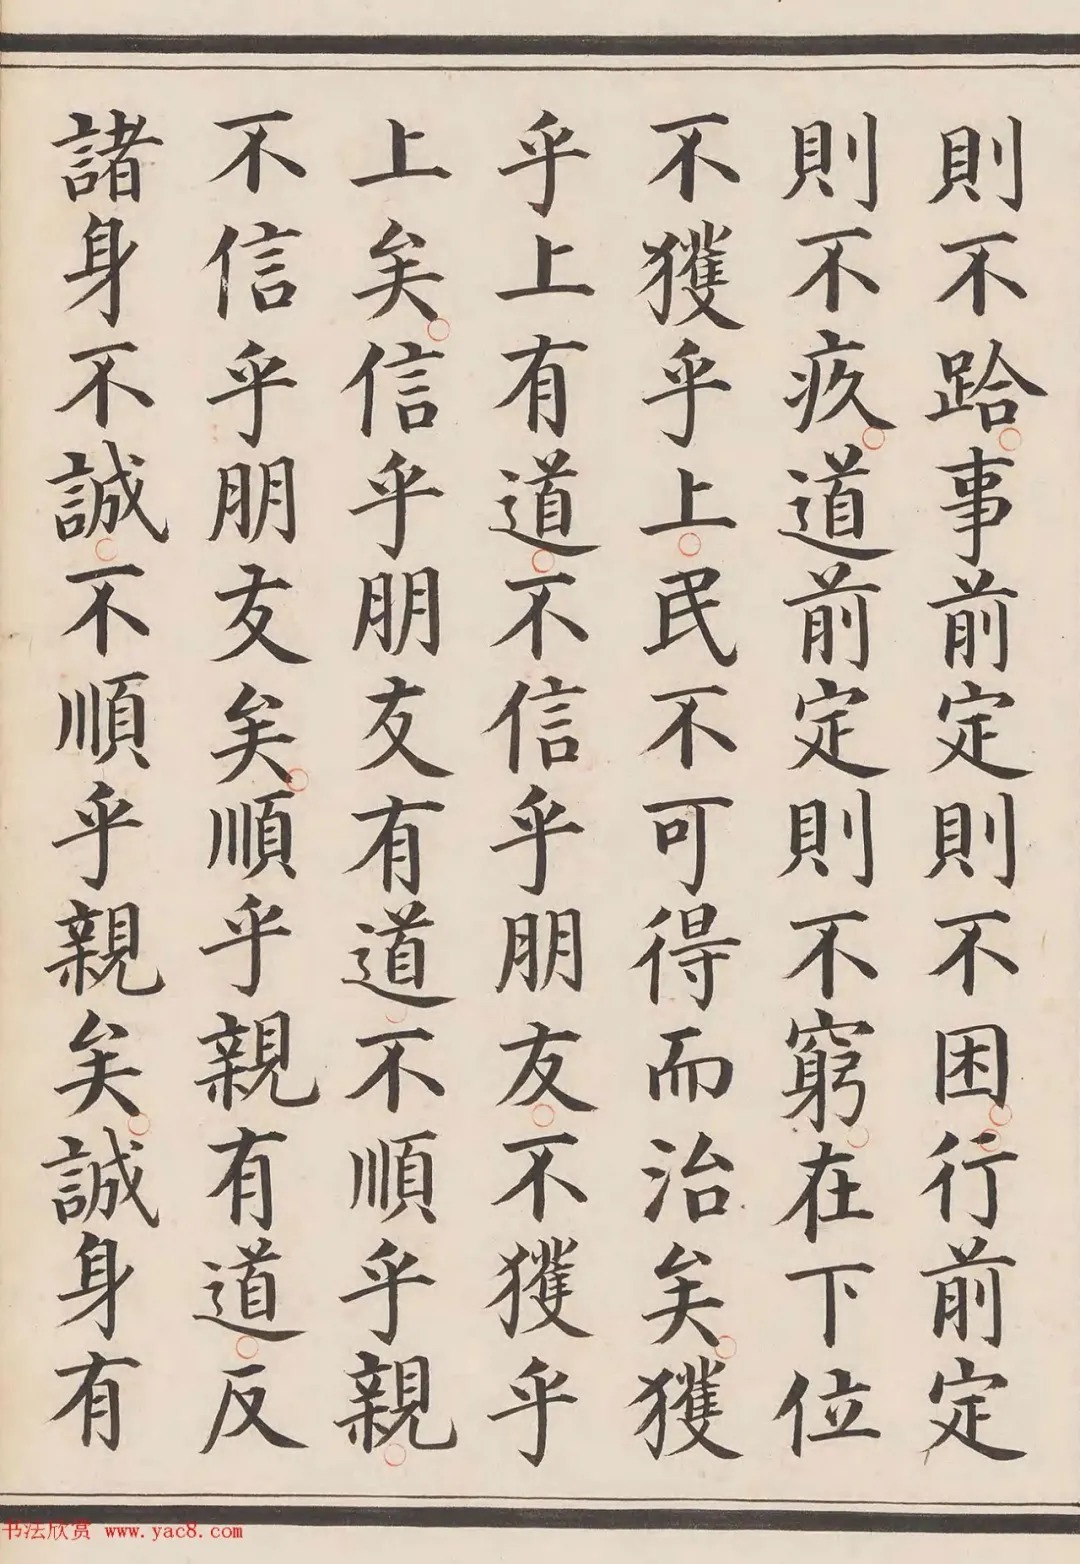 則不跲事前定則不困行前定
則不疚道前定則不窮在下位
不獲乎上民不可得而治矣獲
乎上有道不信乎朋友不獲乎
上矣信乎朋友有道不順乎親
不信乎朋友矣順乎親有道反
諸身不誠不順乎親矣誠身有
书法欣赏 www.yac8.com